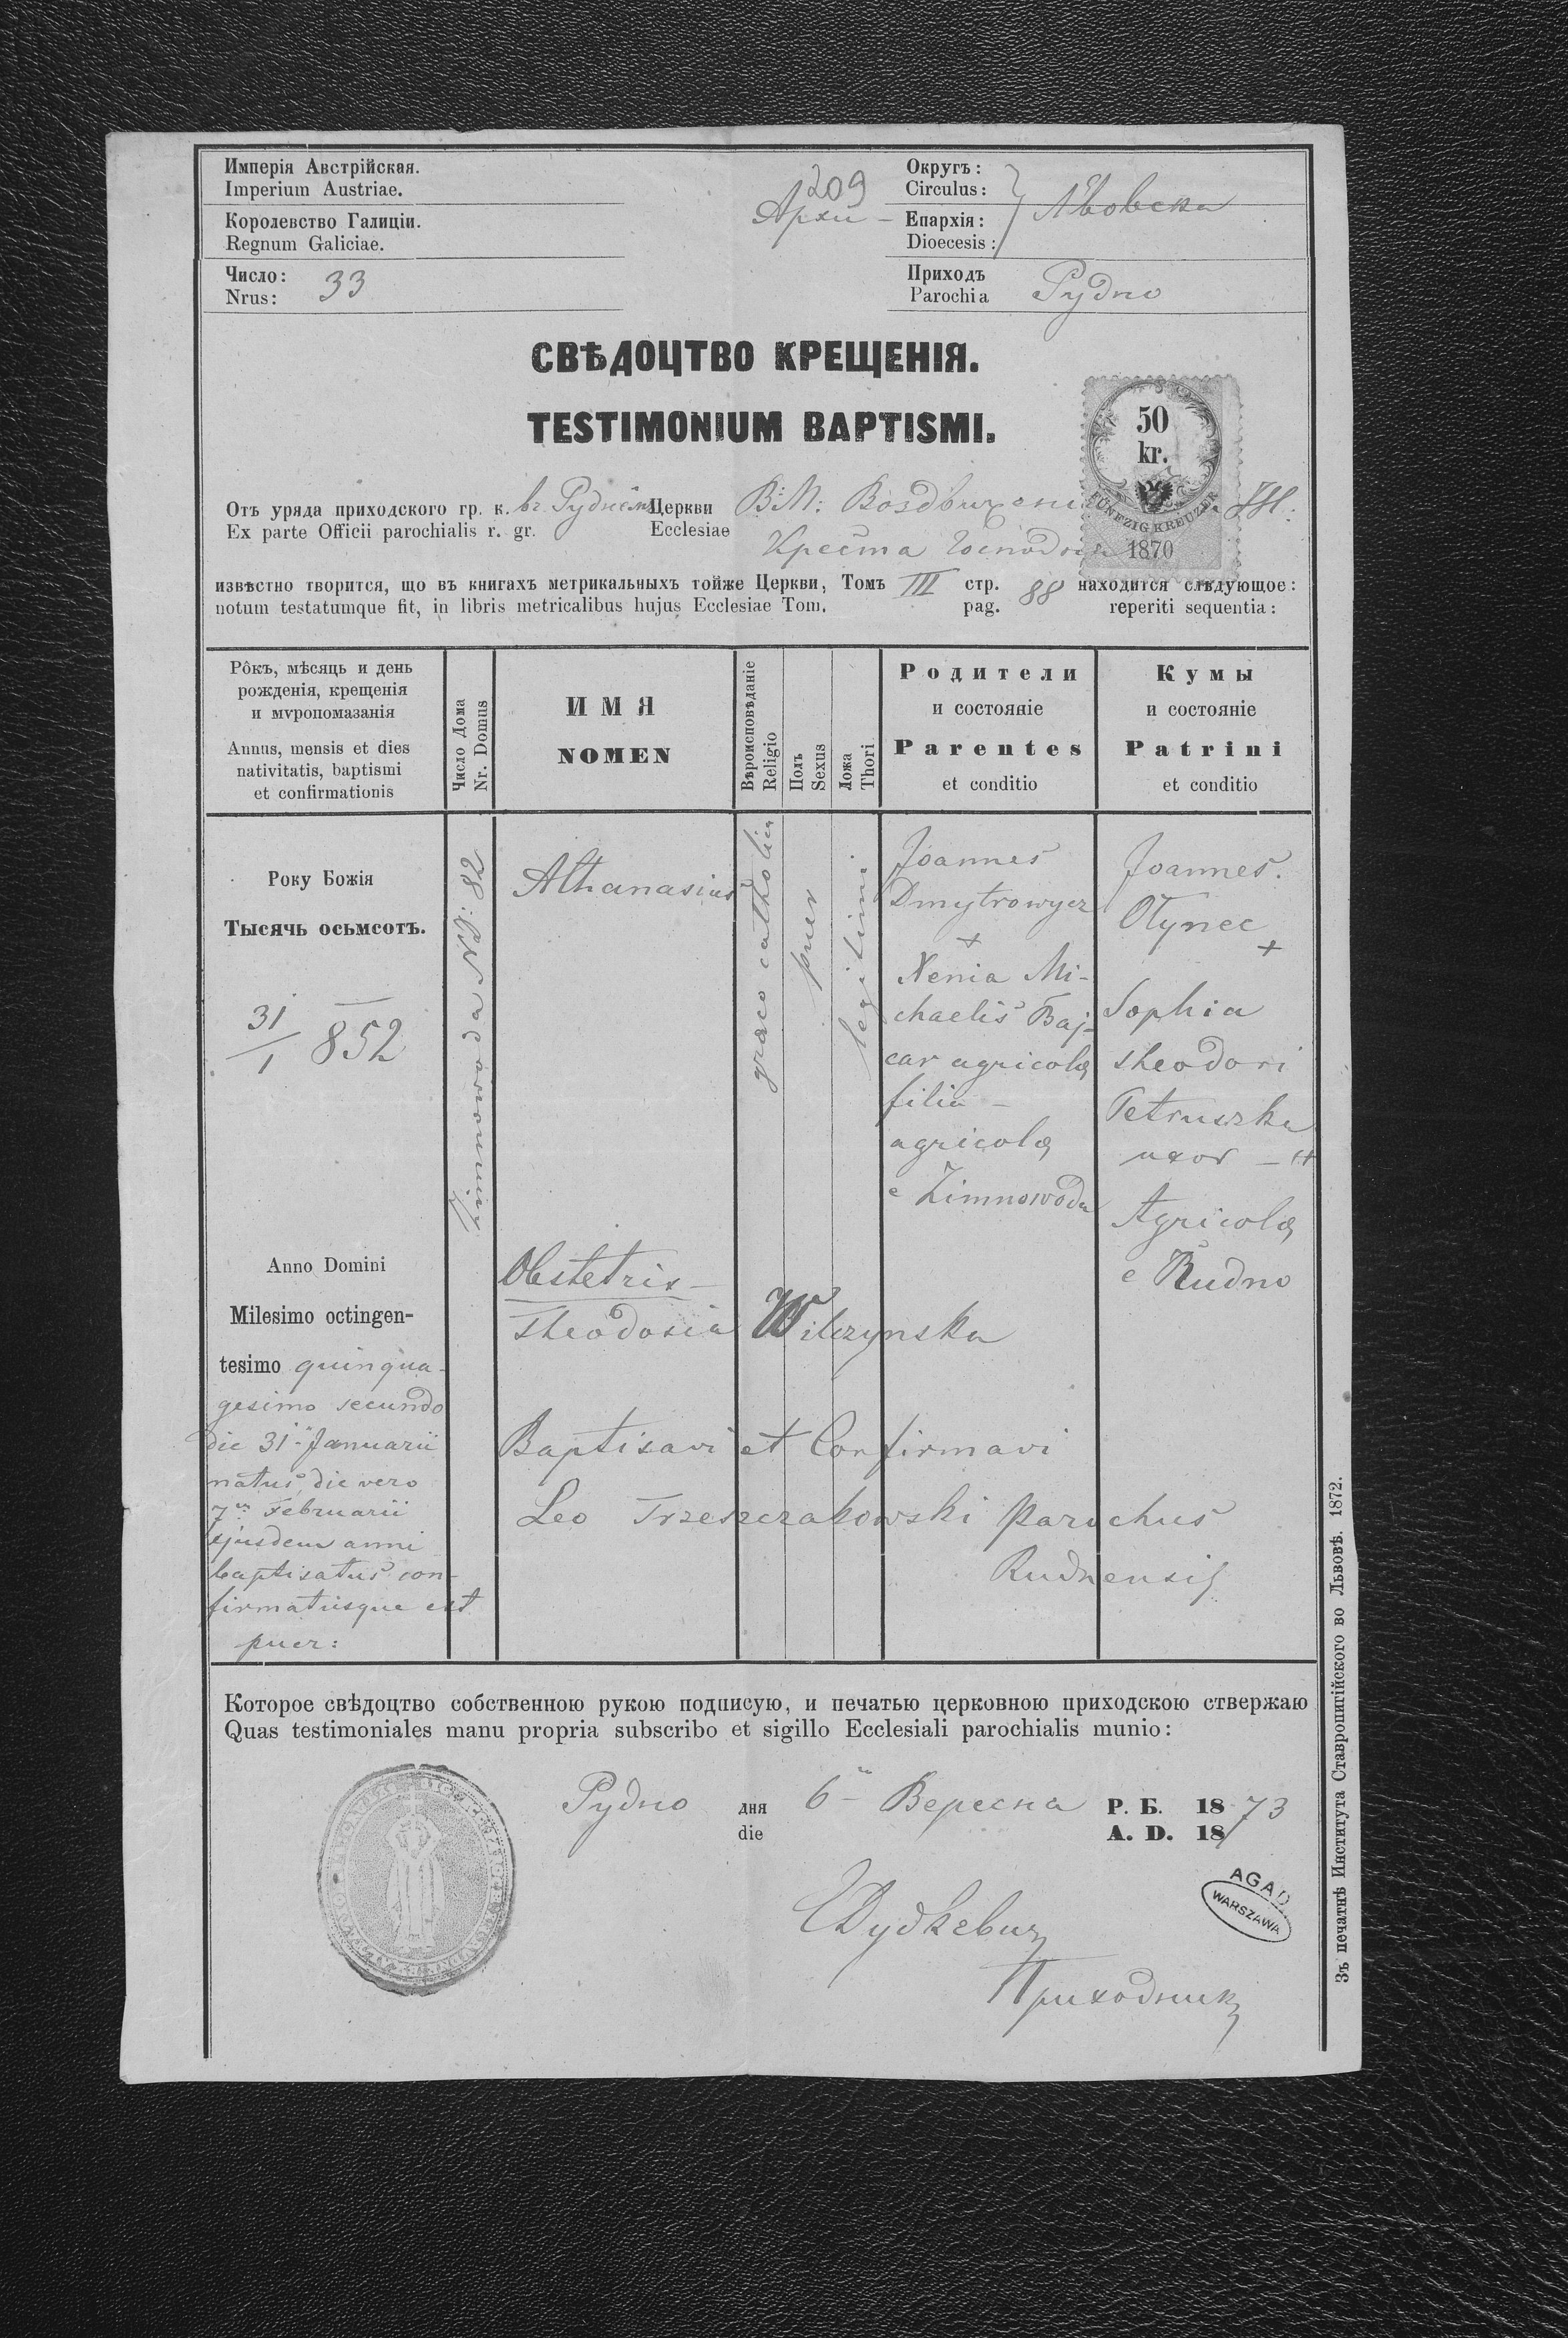 Имперія Австрійская.
Imperium Austriae.
Королевство Галиціи.
Regnum Galiciae.
Число: 33
Nrus:
209
Архи –
Округъ:
Circulus:
Епархія: Львовска
Dioecesis:
Приходъ Рудно
Parochia
СВѢДОЦТВО КРЕЩЕНІЯ.
TESTIMONIUM BAPTISMI.
50
kr.
FÜNFZIG KREUZER
1870
Отъ уряда приходского гр. к. Церкви В: М:
Ex parte Officii parochialis r. gr. Ecclesiae
Креста
извѣстно творится, що въ книгахъ метрикальныхъ тойже Церкви, Томъ III стр. 88 находится слѣдующое:
notum testatumque fit, in libris metricalibus hujus Ecclesiae Tom. pag. reperiti sequentia:
Рôкъ, мѣсяць и день
рожденія, крещенія
и мѵропомазанія
Annus, mensis et dies
nativitatis, baptismi
et confirmationis
Число Дома
Nr. Domus
ИМЯ
NOMEN
Вѣроисповѣданіе
Religio
Полъ
Sexus
Ложа
Thori
Родители
и состояніе
Parentes
et conditio
Кумы
и состояніе
Patrini
et conditio
Року Божія
Тысячь осьмсотъ.
31/1 852
Anno Domini
Milesimo octingen-
tesimo quinqua-
gesimo secundo
die 31 Januarii
natus, die vero
7 Februarii
ejusdem anni
baptisatus con-
firmatusque est
puer:
Zimnowoda N: 82
Athanasius
graeco catholica
puer
legitimi
Joannes
Dmytrowycz
+
Xenia Mi-
chaelis Baj-
car agricolæ
filia –
agricolæ
e Zimnowoda
Joannes.
Olynec
+
Sophia
Theodori
Petruszka
uxor –
Agricolæ
e Rudno
Obstetrix –
Theodosia Wilczynska
Baptisavi et Confirmavi
Leo Trzeszczakowski Parochus
Rudnensis
Которое свѣдоцтво собственною рукою подписую, и печатью церковною приходскою ствержаю
Quas testimoniales manu propria subscribo et sigillo Ecclesiali parochialis munio:
Рудно дня 6 Вересна Р. Б. 1873
die A. D. 18
Приходник
AGAD
WARSZAWA
Зъ печатнѣ Института Ставропигійского во Львовѣ. 1872.